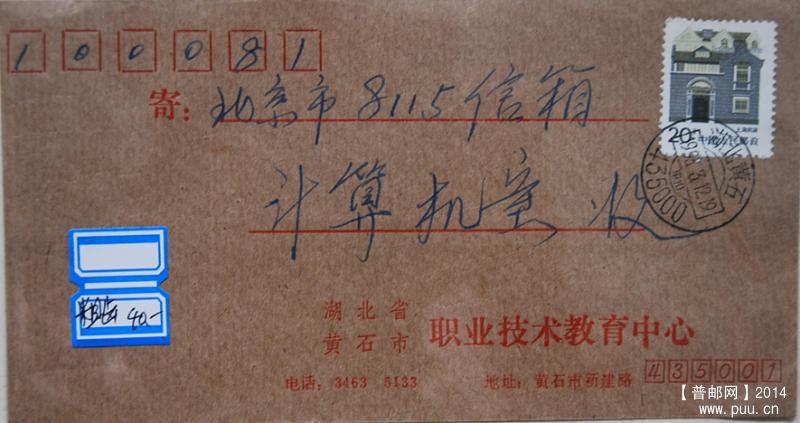 100081
寄：北京市8115信箱
计算机室 收
20分
上海民居
中国人民邮政
湖北黄石
435000
40.-
湖北省
黄石市 职业技术教育中心
电话：3463 5133 地址：黄石市新建路 435001
【普邮网】2014
www.puu.cn